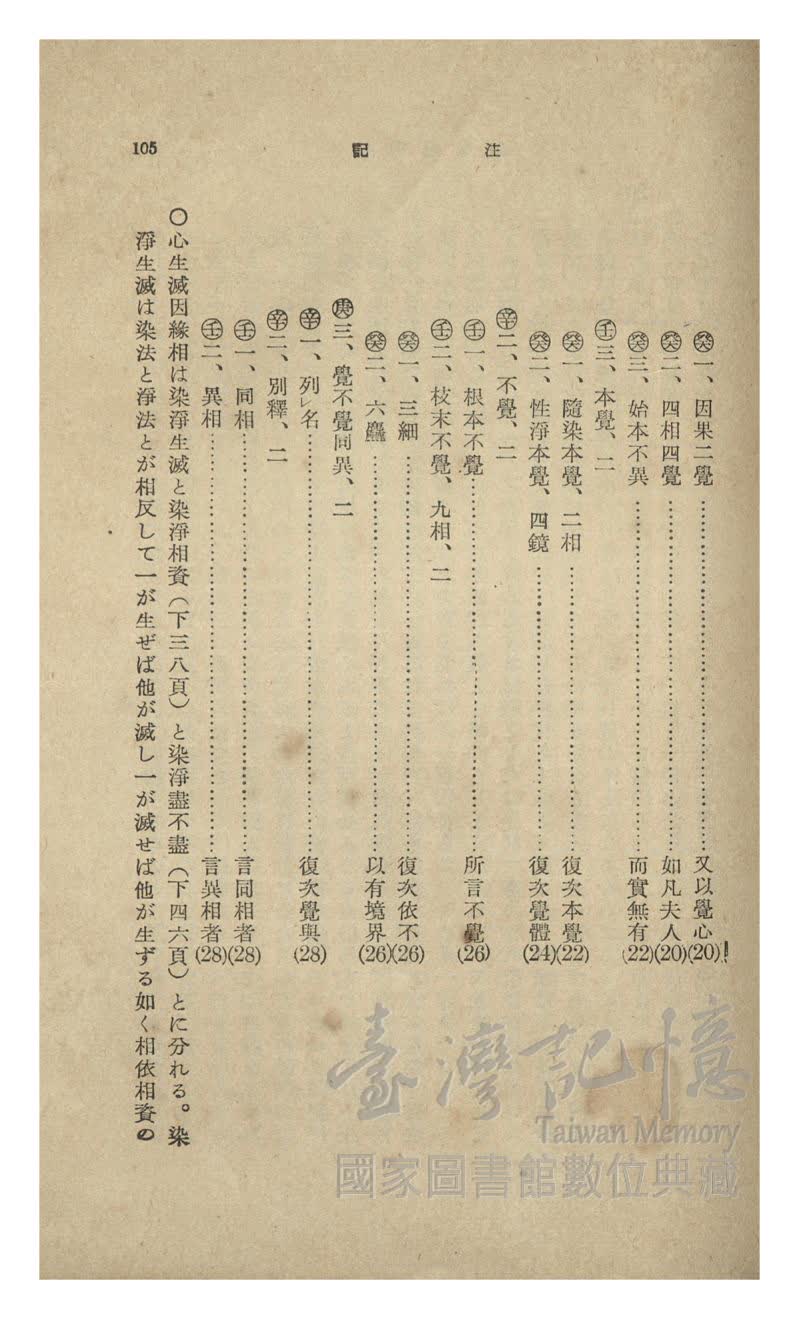 105
注記
㊛一、因果二覺……又以覺心(20)
癸二、四相四覺……如凡夫人(20)
癸三、始本不異……而實無有(22)
壬三、本覺、二
癸一、隨染本覺、二相……復次本覺(22)
癸二、性淨本覺、四鏡……復次覺體(24)
辛二、不覺、二
壬一、根本不覺……所言不覺(26)
壬二、枝末不覺、九相、二
癸一、三細……復次依不(26)
癸二、六麤……以有境界(26)
庚三、覺不覺同異、二
辛一、列レ名……復次覺與(28)
辛二、別釋、二
壬一、同相……言同相者(28)
壬二、異相……言異相者(28)
〇心生滅因緣相は染淨生滅と染淨相資(下三八頁)と染淨盡不盡(下四六頁)とに分れる。染
淨生滅は染法と淨法とが相反して一が生ぜば他が滅し一が滅せば他が生ずる如く相依相資の
臺灣記憶
Taiwan Memory
國家圖書館數位典藏